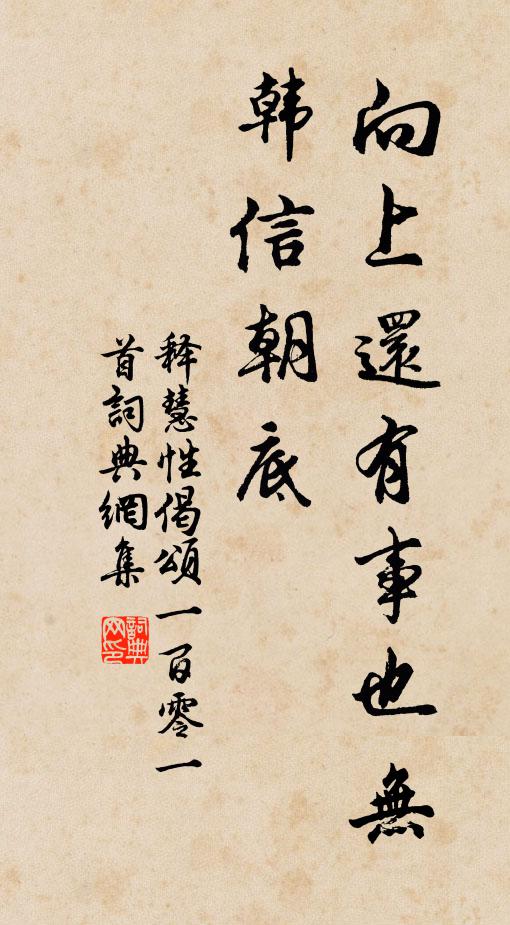 向上還有事也無
韩信朝底
释慧性偈頌一百零一
首詞典網集
詞典
网印